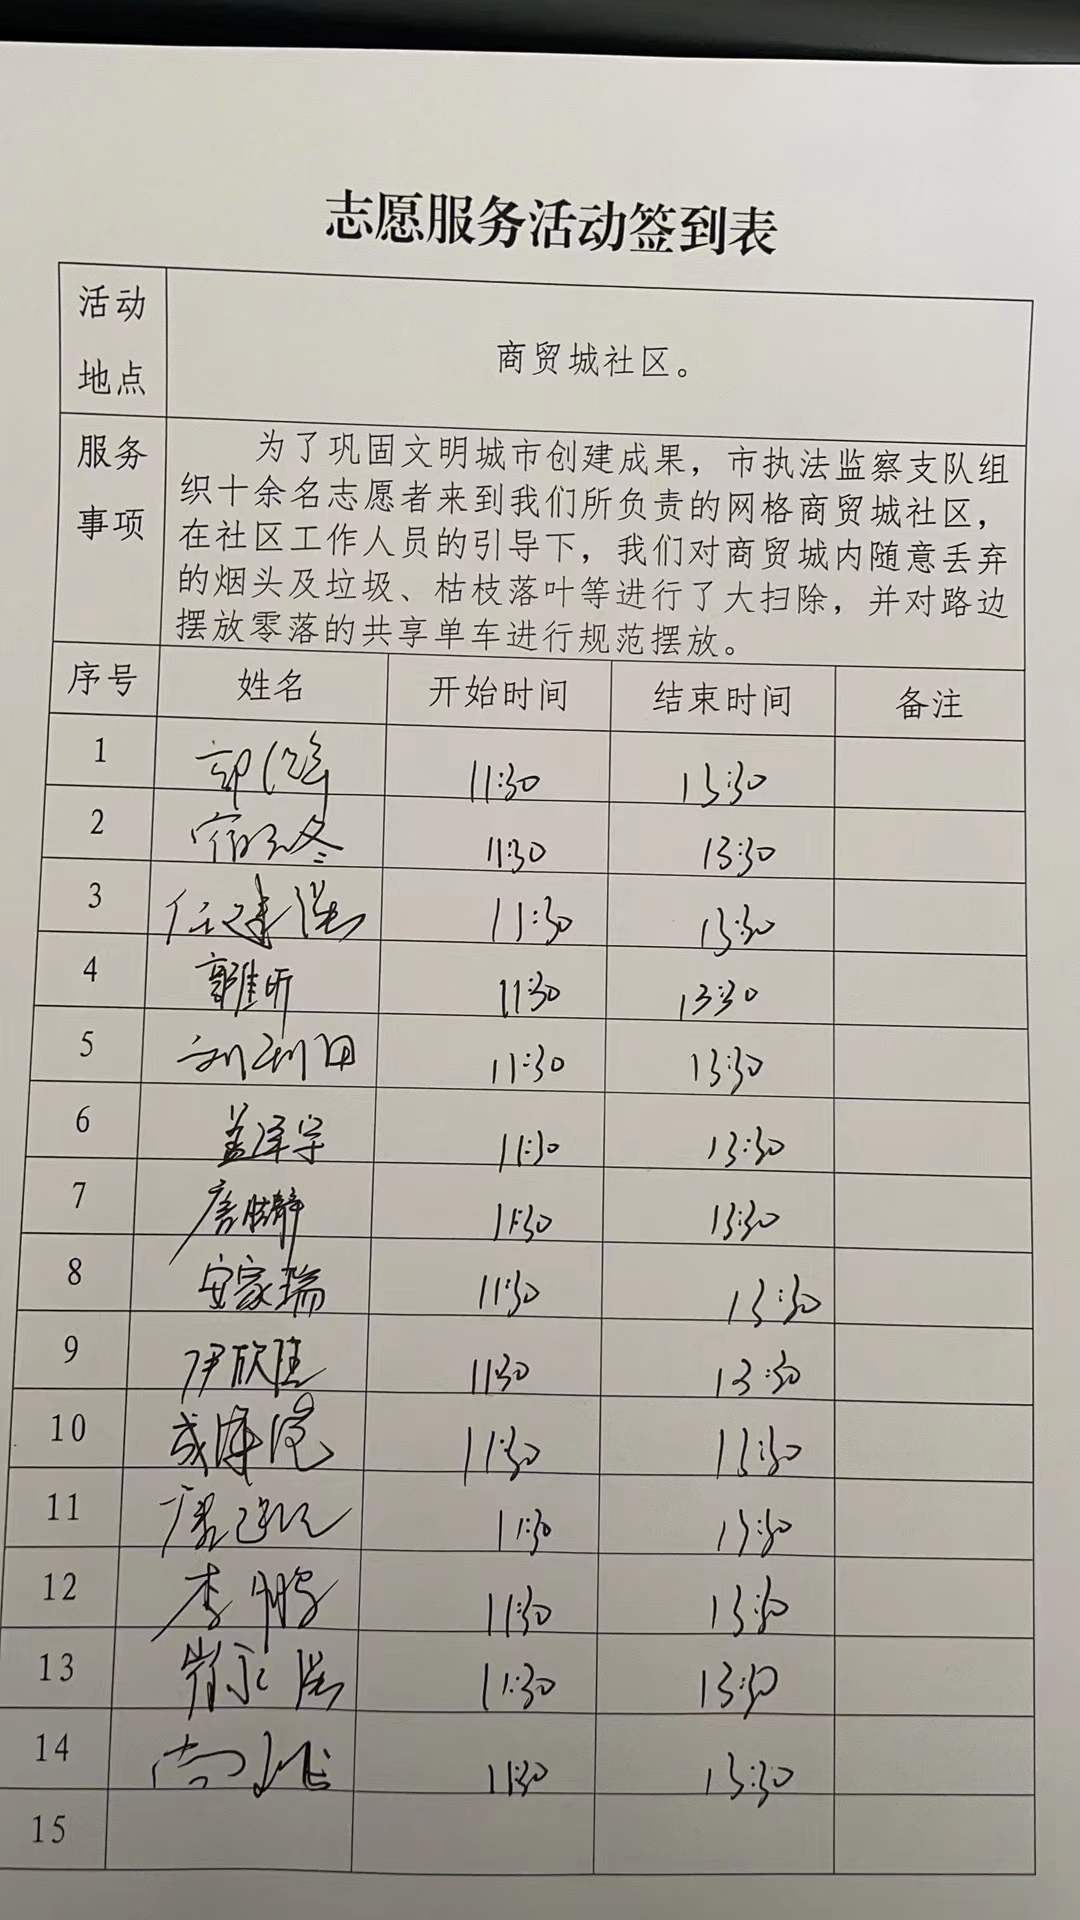 志愿服务活动签到表
活动
地点
商贸城社区。
服务
事项
为了巩固文明城市创建成果，市执法监察支队组
织十余名志愿者来到我们所负责的网格商贸城社区，
在社区工作人员的引导下，我们对商贸城内随意丢弃
的烟头及垃圾、枯枝落叶等进行了大扫除，并对路边
摆放零落的共享单车进行规范摆放。
序号 姓名 开始时间 结束时间 备注
1 11:30 13:30
2 11:30 13:30
3 任建 11:30 13:30
4 郭雅昕 11:30 13:30
5 刘利田 11:30 13:30
6 孟泽宇 11:30 13:30
7 唐 静 11:30 13:30
8 安家瑞 11:30 13:30
9 尹欣佳 11:30 13:30
10 11:30 13:30
11 11:30 13:30
12 李鹏 11:30 13:30
13 11:30 13:30
14 尚 11:30 13:30
15